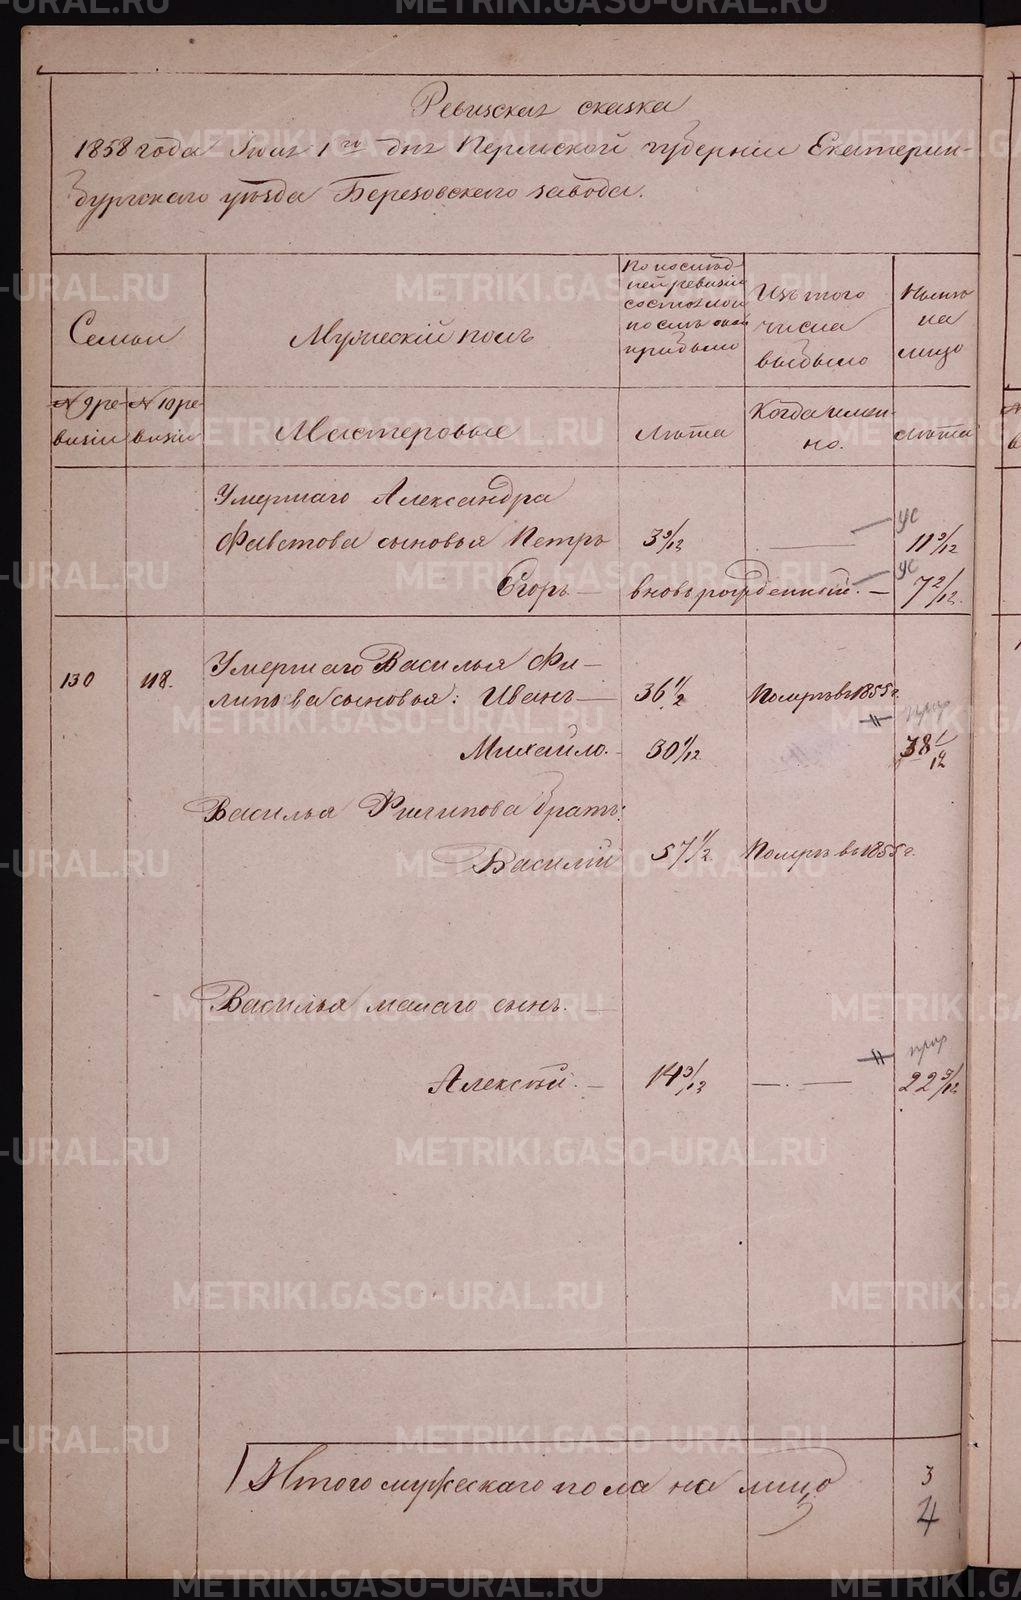 Ревизская сказка
1858 года Іюля 1го дня Пермской губерніи Екатерин-
бургскаго уѣзда Березовскаго завода.
Семьи
Мужескій полъ
По послѣд-
ней ревизіи
состояло и
послѣ оной
прибыло
Изъ того
числа
выбыло
Нынѣ
на
лицо
№ 9 ре-
визіи
№ 10 ре-
визіи
Мастеровые
Лѣта
Когда имен-
но.
Лѣта
Умершаго Александра
Фавстова сыновья Петръ 3 9/12 — ус 11 9/12
Егоръ — вновь рожденный. — ус 7 2/12.
130 118. Умершаго Василья Фи-
липьева сыновья: Иванъ — 36 1/2 Померъ въ 1855 г.
Михайло. — 30 1/12 38 1/12
Василья Филипова братъ:
Василій 57 1/2 Померъ въ 1855 г.
Василья малаго сынъ. —
Алексѣй. — 14 3/12 — . — 22 3/12
Итого мужескаго пола на лицо 3
4
METRIKI.GASO-URAL.RU